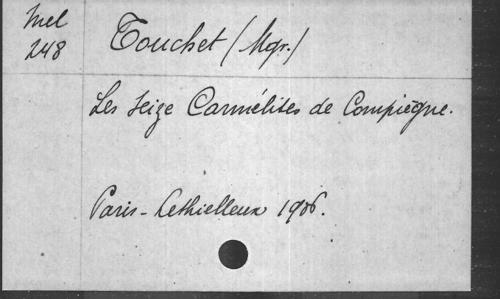 Mel
248
Touchet (Mgr.)
Les Seize Carmélites de Compiègne.
Paris - Lethielleux 1906.